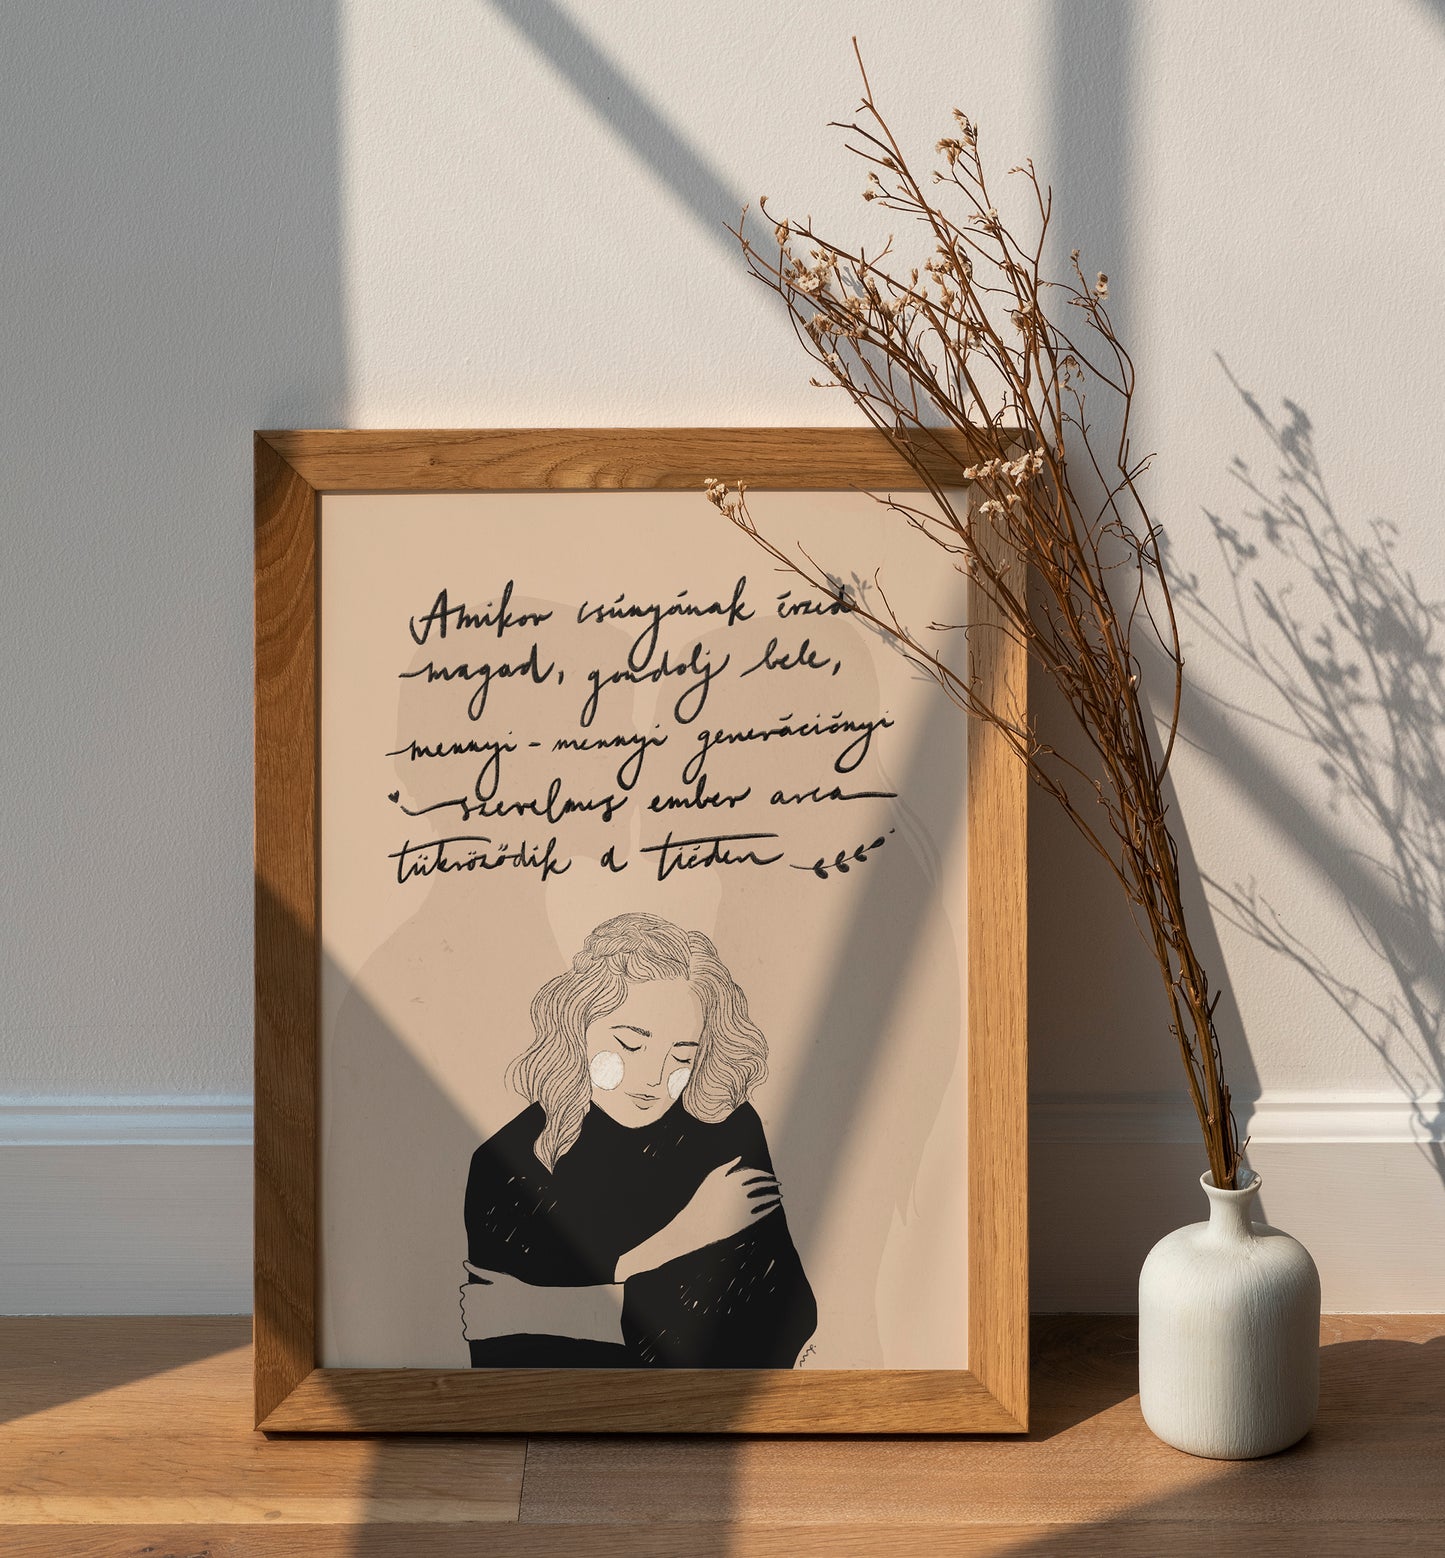 Amikor csúnyának érzed
magad, gondolj bele,
mennyi-mennyi generációnyi
szerelmes ember arca
tükröződik a tiéden